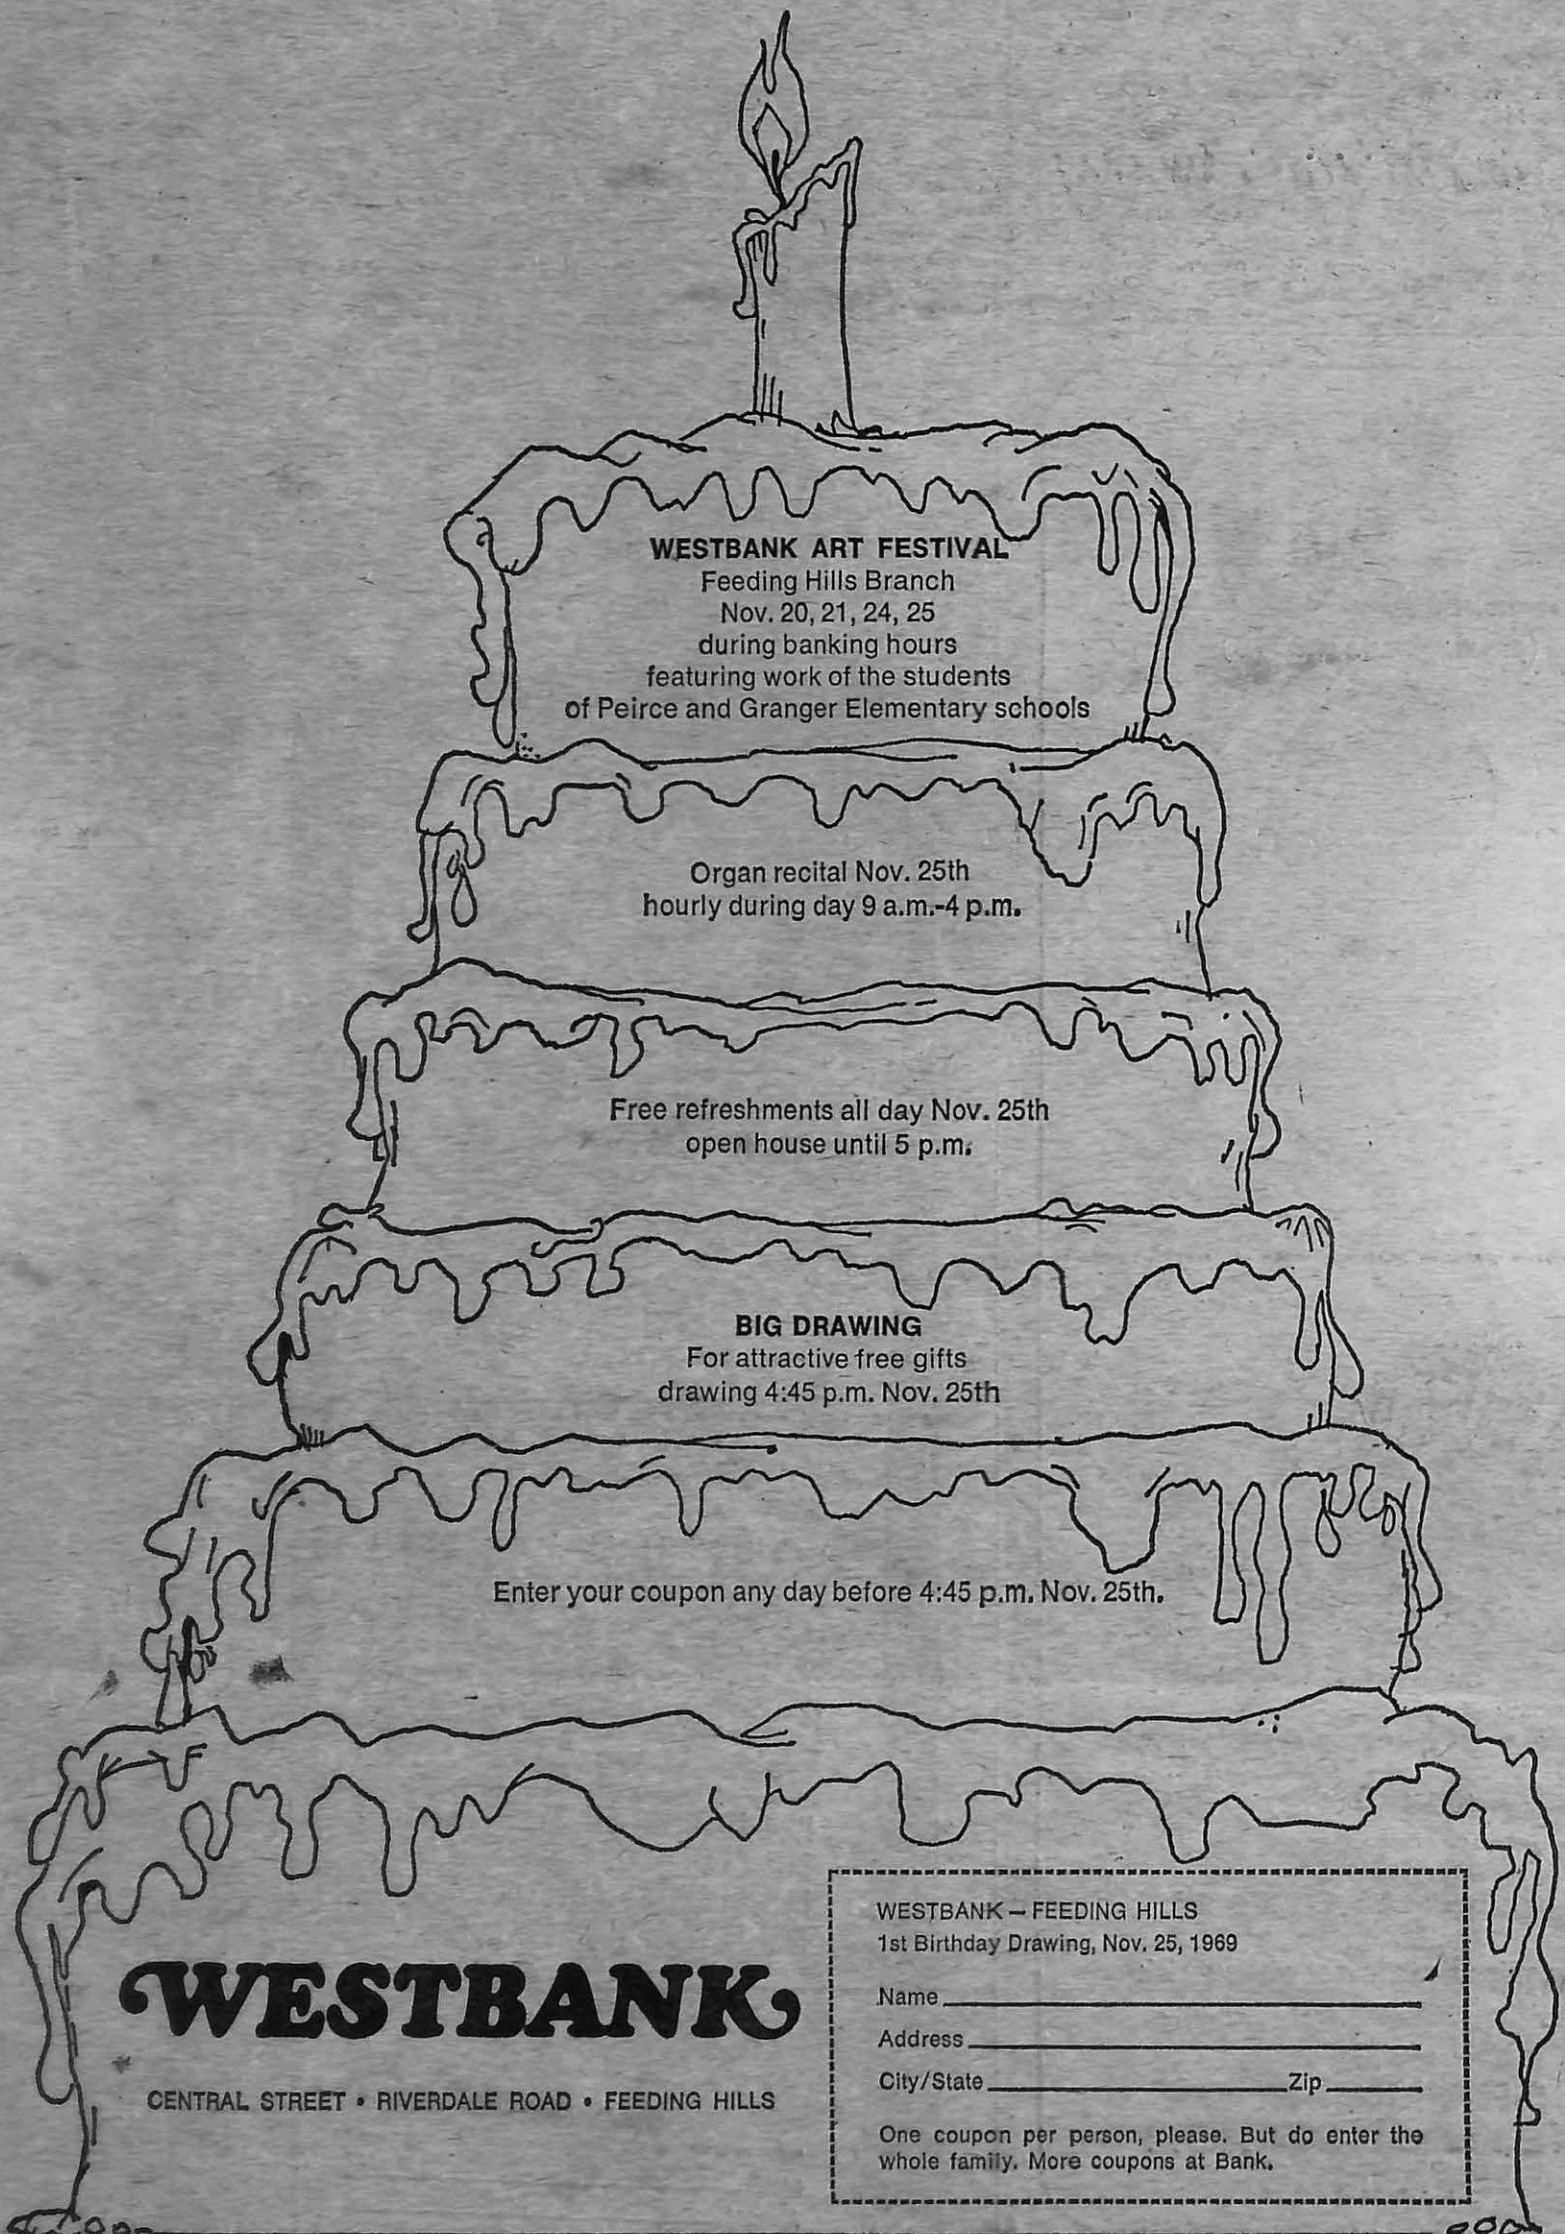 WESTBANK ART FESTIVAL
Feeding Hills Branch
Nov. 20, 21, 24, 25
during banking hours
featuring work of the students
of Peirce and Granger Elementary schools
Organ recital Nov. 25th
hourly during day 9 a.m.-4 p.m.
Free refreshments all day Nov. 25th
open house until 5 p.m.
BIG DRAWING
For attractive free gifts
drawing 4:45 p.m. Nov. 25th
Enter your coupon any day before 4:45 p.m. Nov. 25th.
WESTBANK
CENTRAL STREET • RIVERDALE ROAD • FEEDING HILLS
WESTBANK – FEEDING HILLS
1st Birthday Drawing, Nov. 25, 1969
Name
Address
City/State Zip
One coupon per person, please. But do enter the
whole family. More coupons at Bank.